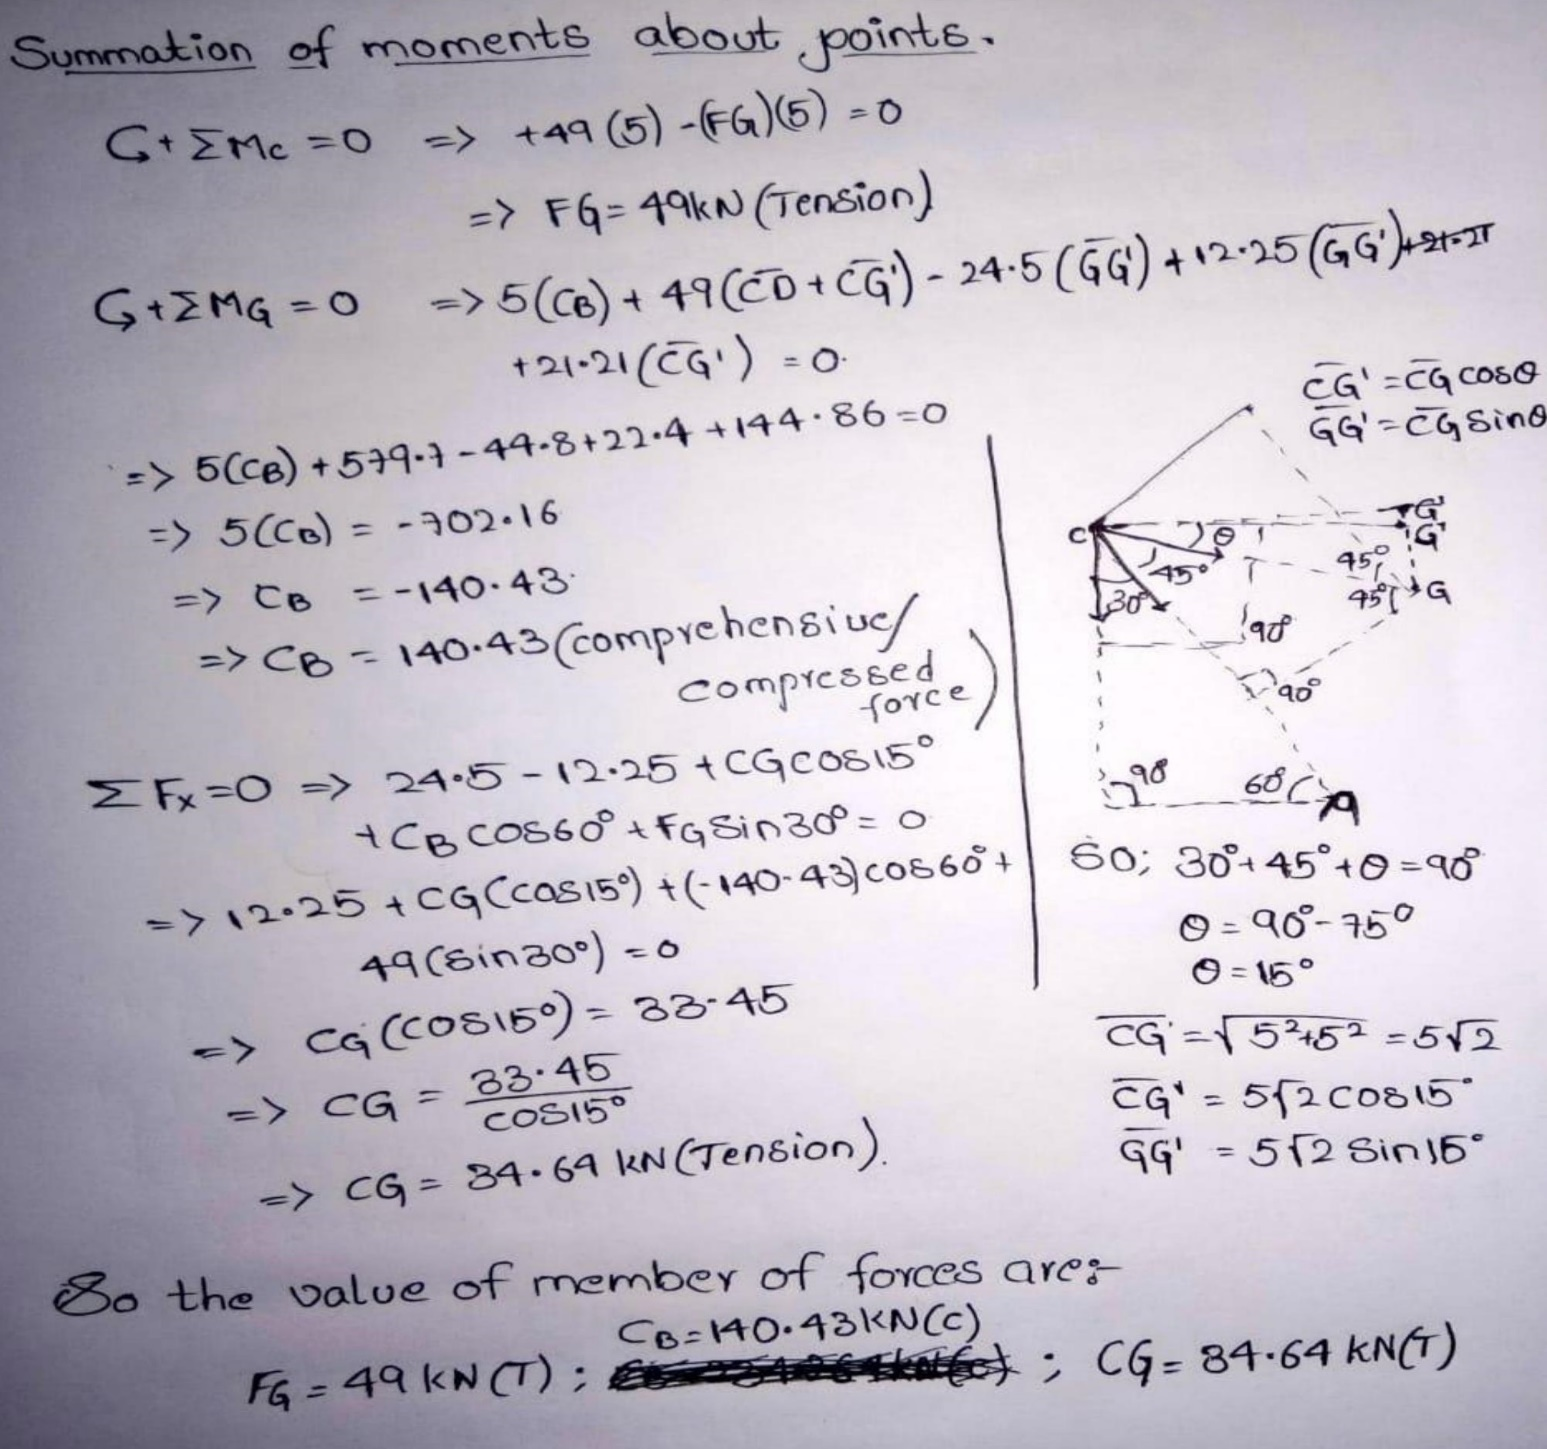 Summation of moments about points.
↺+ΣMc = 0 => +49(5) -(FG)(5) = 0
=> FG = 49kN (Tension)
↺+ΣMG = 0 => 5(CB) + 49(C̅D̅ + C̅G̅') - 24.5(G̅G̅') + 12.25(G̅G̅')
+21.21(C̅G̅') = 0.
=> 5(CB) + 579.7 - 44.8 + 22.4 + 144.86 = 0
=> 5(CB) = -702.16
=> CB = -140.43.
=> CB = 140.43 (comprehensive/
compressed
force)
ΣFx = 0 => 24.5 - 12.25 + CGcos15°
+ CB cos60° + FG Sin30° = 0
=> 12.25 + CG(cos15°) + (-140.43)cos60° +
49(sin30°) = 0
=> CG(cos15°) = 33.45
=> CG = 33.45
cos15°
=> CG = 34.64 kN (Tension).
C̅G̅' = C̅G̅ cosθ
G̅G̅' = C̅G̅ Sinθ
G'
C
θ
G'
45°
45°
45°
G
30°
90°
90°
90
60°
A
So; 30° + 45° + θ = 90°
θ = 90° - 75°
θ = 15°
C̅G̅ = √5²+5² = 5√2
C̅G̅' = 5√2 cos15°
G̅G̅' = 5√2 Sin15°
So the value of member of forces are:-
CB = 140.43 KN(C)
FG = 49 kN (T) ; ; CG = 34.64 kN(T)